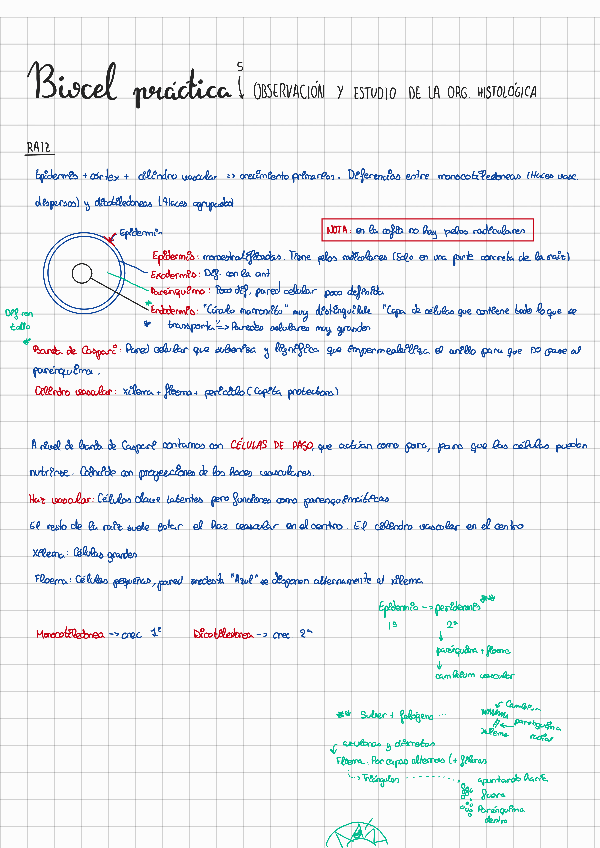 Biocel práctica 5 OBSERVACIÓN Y ESTUDIO DE LA ORG. HISTOLÓGICA
RAIZ
Epidermis + cortex + cilindro vascular => crecimiento primarios. Diferencias entre monocotiledoneas (Haces vasc.
dispersos) y dicotiledoneas (Haces agrupados)
NOTA: en la cofia no hay pelos radiculares
Epidermis
Epidermis: monoestratificadas. Tiene pelos radiculares (Solo en una parte concreta de la raiz)
Exodermis: Dif. con la ant
Parénquima: Poco dif, pared celular poco definida
Endodermis: "Círculo marroncito" muy distinguible "Capa de células que contiene todo lo que se
* transporta" => Paredes celulares muy grandes
Dif con
tallo
* Banda de Caspari: Pared celular que suberiza y lignifica que impermeabiliza el anillo para que no pase al
parénquima.
Cilindro vascular: xilema + floema + periciclo (Capita protectora)
A nivel de banda de Caspari contamos con CÉLULAS DE PASO, que actúan como para, para que las células puedan
nutrirse. Coincide con proyecciones de los haces vasculares.
Haz vascular: Células clave latentes pero funciones como parenquimáticas
El resto de la raiz suele estar el haz vascular en el centro. El cilindro vascular en el centro
Xilema: Células grandes
Floema: Células pequeñas, pared modesta "Azul" se disponen alternamente al xilema
Epidermis -> peridermis **
1ª 2ª
Monocotiledonea -> crec 1º Dicotiledonea -> crec 2º
parénquima + floema
cambium vascular
** Suber + felógeno ...
Cambium
xilema
parénquima
radial
Floema: Por capas alternas (+ fibras
Triángulos
apuntando hacia
fuera
Parénquima
dentro